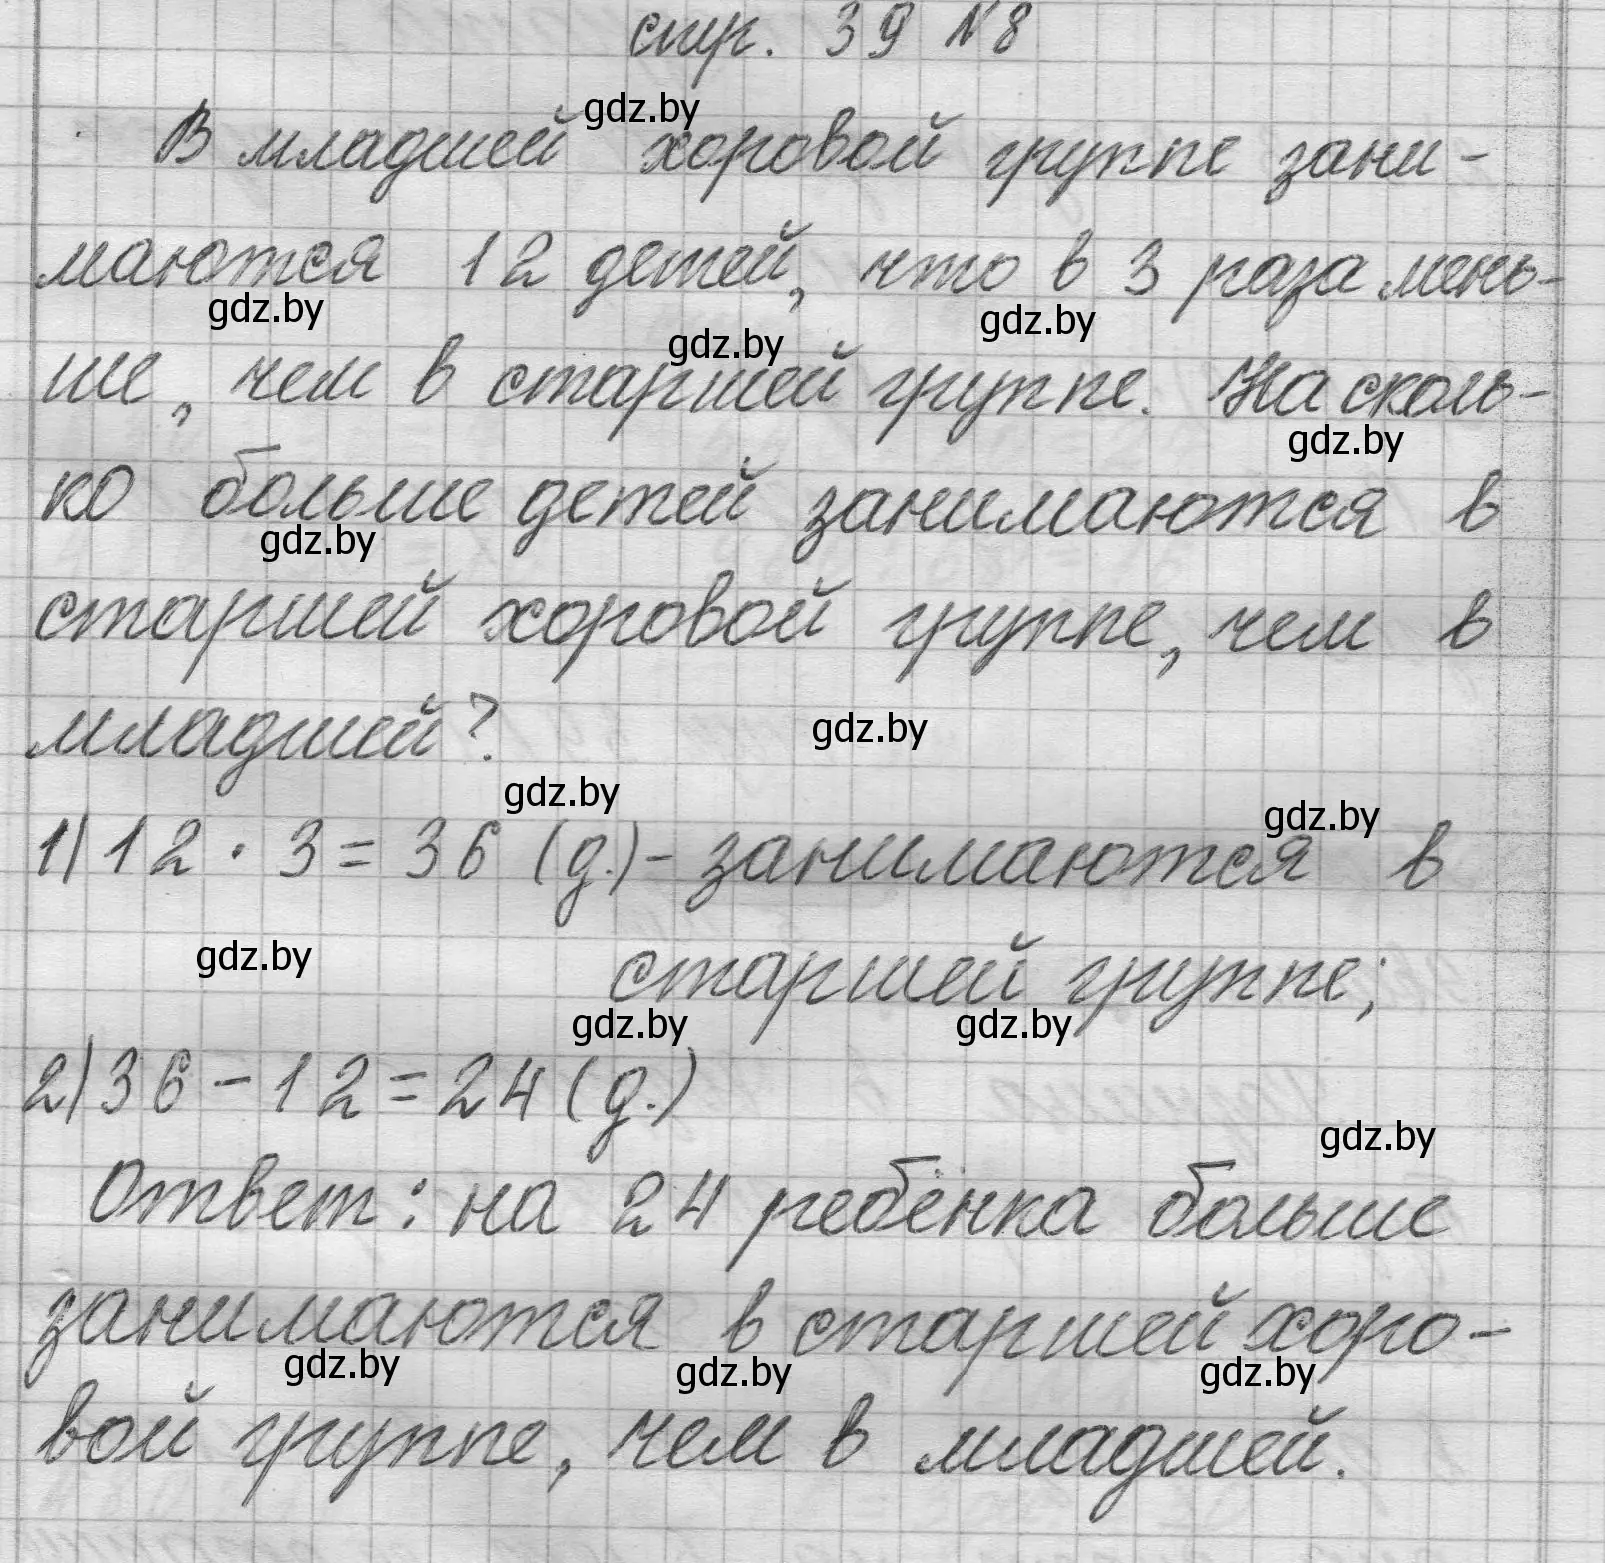 стр. 39 №8
gdz.by
В младшей хоровой группе зани-
маются 12 детей, что в 3 раза мень-
gdz.by gdz.by gdz.by
ше, чем в старшей группе. На сколь-
gdz.by
ко больше детей занимаются в
gdz.by
старшей хоровой группе, чем в
младшей?
gdz.by
gdz.by gdz.by
1) 12 · 3 = 36 (д.) - занимаются в
gdz.by
старшей группе;
gdz.by gdz.by
2) 36 - 12 = 24 (д.)
gdz.by
Ответ: на 24 ребёнка больше
занимаются в старшей хоро-
gdz.by gdz.by gdz.by
вой группе, чем в младшей.